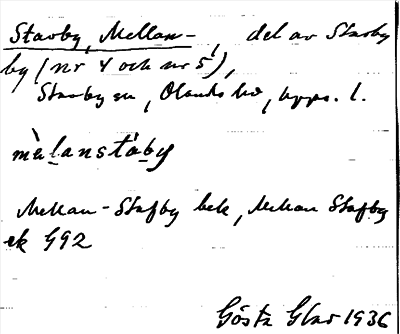 Stavby, Mellan-, del av Stavby
by (nr 4 och nr 5),
Stavby sn, Olands hd, Upps. l.
mèlanstáby
Mellan-Stafby bek, Mellan Stafby
ek G92
Gösta Glas 1936